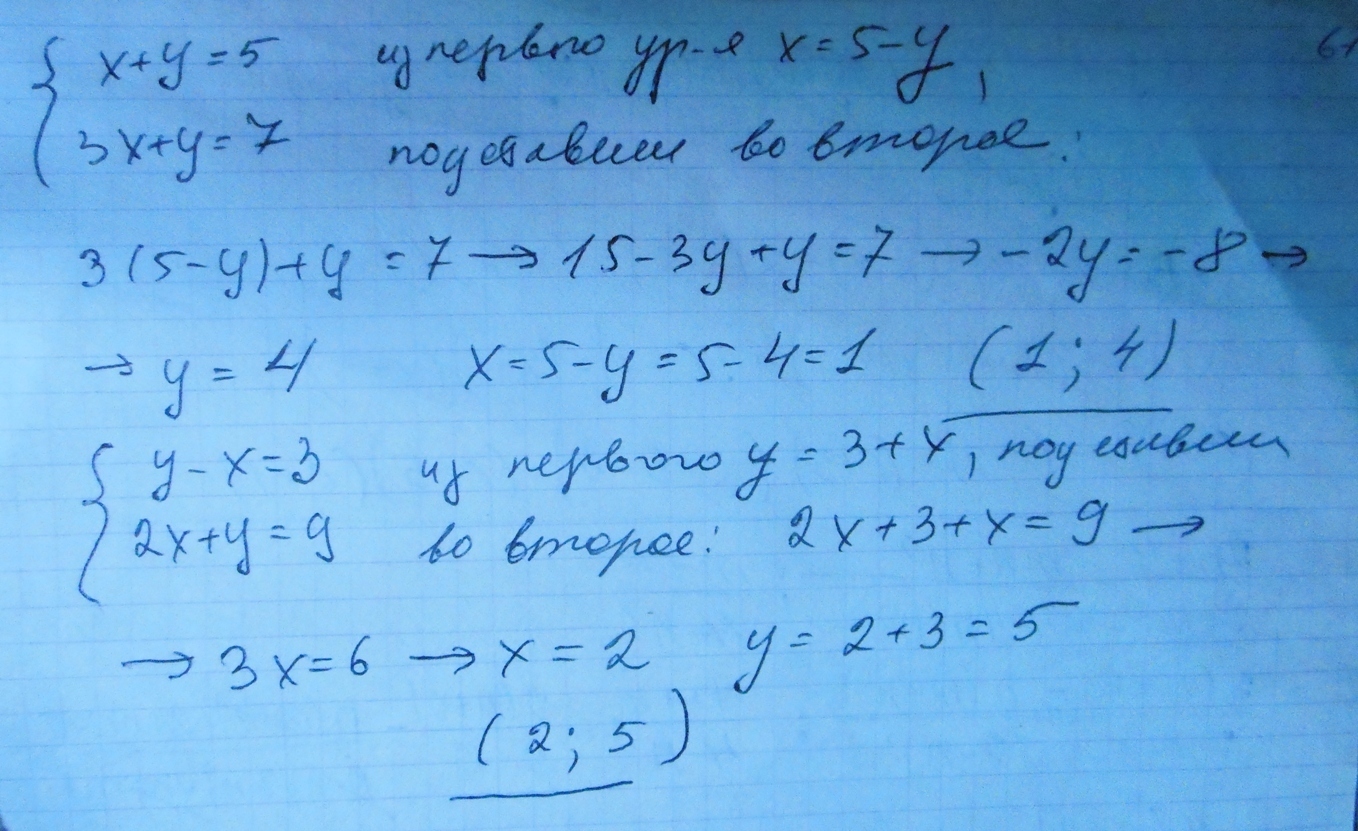 { x+y=5 из первго ур-я x=5-y,
3x+y=7 подставим во второе:
3(5-y)+y=7→15-3y+y=7→-2y=-8→
→y=4 x=5-y=5-4=1 (1;4)
{ y-x=3 из первого y=3+x, подставим
2x+y=9 во второе: 2x+3+x=9→
→3x=6→x=2 y=2+3=5
(2;5)